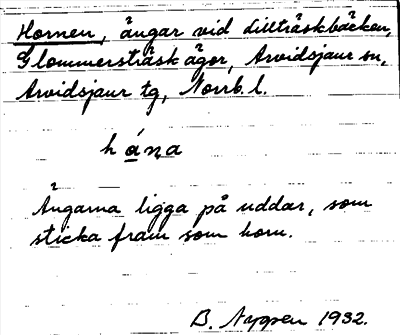 Hornen, ängar vid Lillträskbäcken,
Glommersträsk ägor, Arvidsjaur sn,
Arvidsjaur tg, Norrb. l.
hạ́ṇa
Ängarna ligga på uddar, som
sticka fram som horn.
B. Nygren 1932.